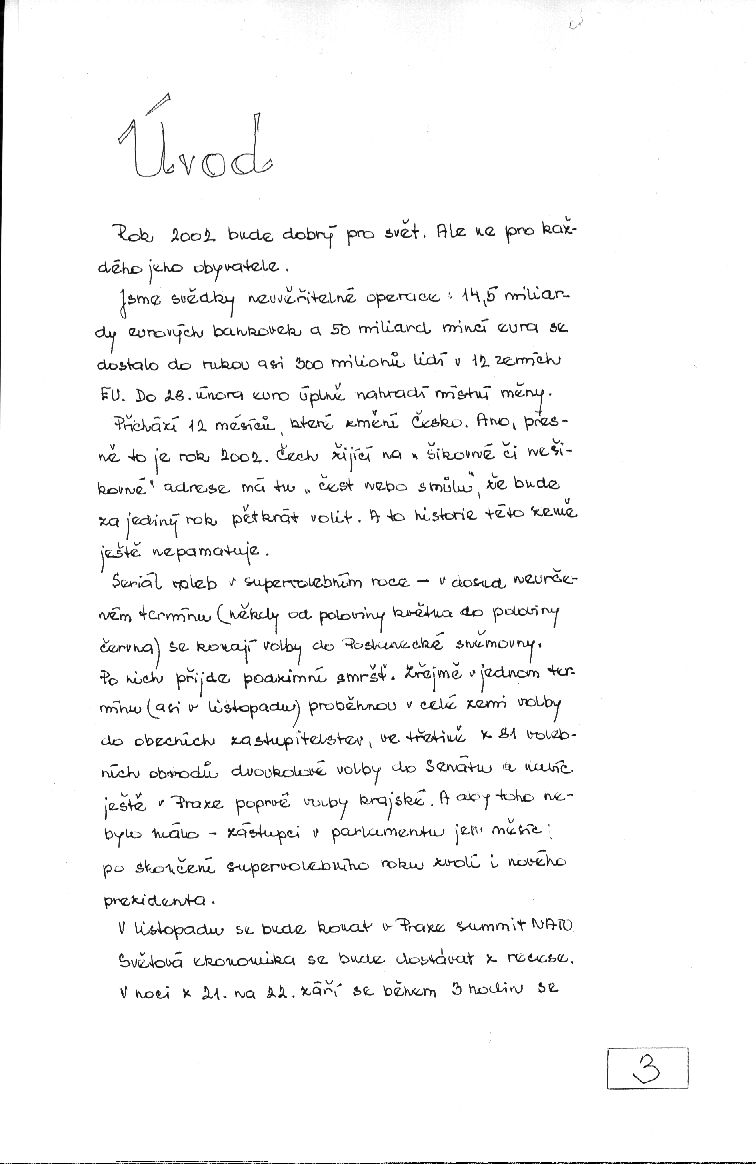 Úvod
Rok 2002 bude dobrý pro svět. Ale ne pro kaž-
dého jeho obyvatele.
Jsme svědky neuvěřitelné operace: 14,5 miliar-
dy eurových bankovek a 50 miliard mincí eura se
dostalo do rukou asi 300 milionů lidí v 12 zemích
EU. Do 28. února euro úplně nahradí místní měny.
Přichází 12 měsíců, které změní Česko. Ano, přes-
ně to je rok 2002. Čech žijící na „šikovné či neši-
kovné" adrese má tu „čest nebo smůlu", že bude
za jediný rok pětkrát volit. A to historie této země
ještě nepamatuje.
Seriál voleb v supervolebním roce – v dosud neurče-
ném termínu (někdy od poloviny května do poloviny
června) se konají volby do Poslanecké sněmovny.
Po nich přijde podzimní smršť. Zřejmě v jednom ter-
mínu (asi v listopadu) proběhnou v celé zemi volby
do obecních zastupitelstev, ve třetině z 81 voleb-
ních obvodů dvoukolové volby do Senátu a navíc
ještě v Praze poprvé volby krajské. A aby toho ne-
bylo málo – zástupci v parlamentu jen měsíc
po skončení supervolebního roku zvolí i nového
prezidenta.
V listopadu se bude konat v Praze summit NATO
Světová ekonomika se bude dostávat z recese.
V noci z 21. na 22. září se během 3 hodin se
3